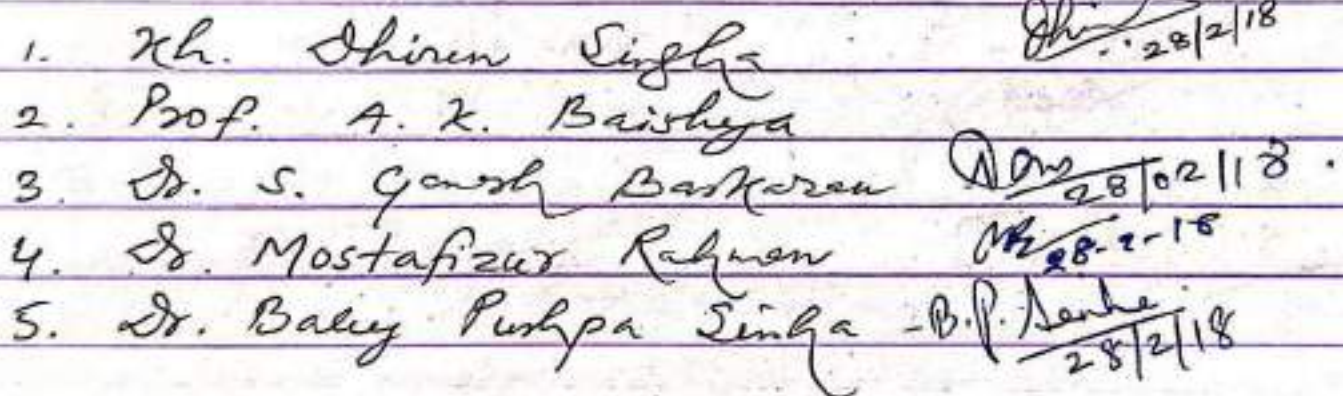 1. Kh. Dhiren Singha 28/2/18
2. Prof. A. K. Baishya
3. Dr. S. Ganesh Baskaran 28/02/18.
4. Dr. Mostafizur Rahman 28-2-18
5. Dr. Pushpa Sinha - B.P. Sinha 28/2/18